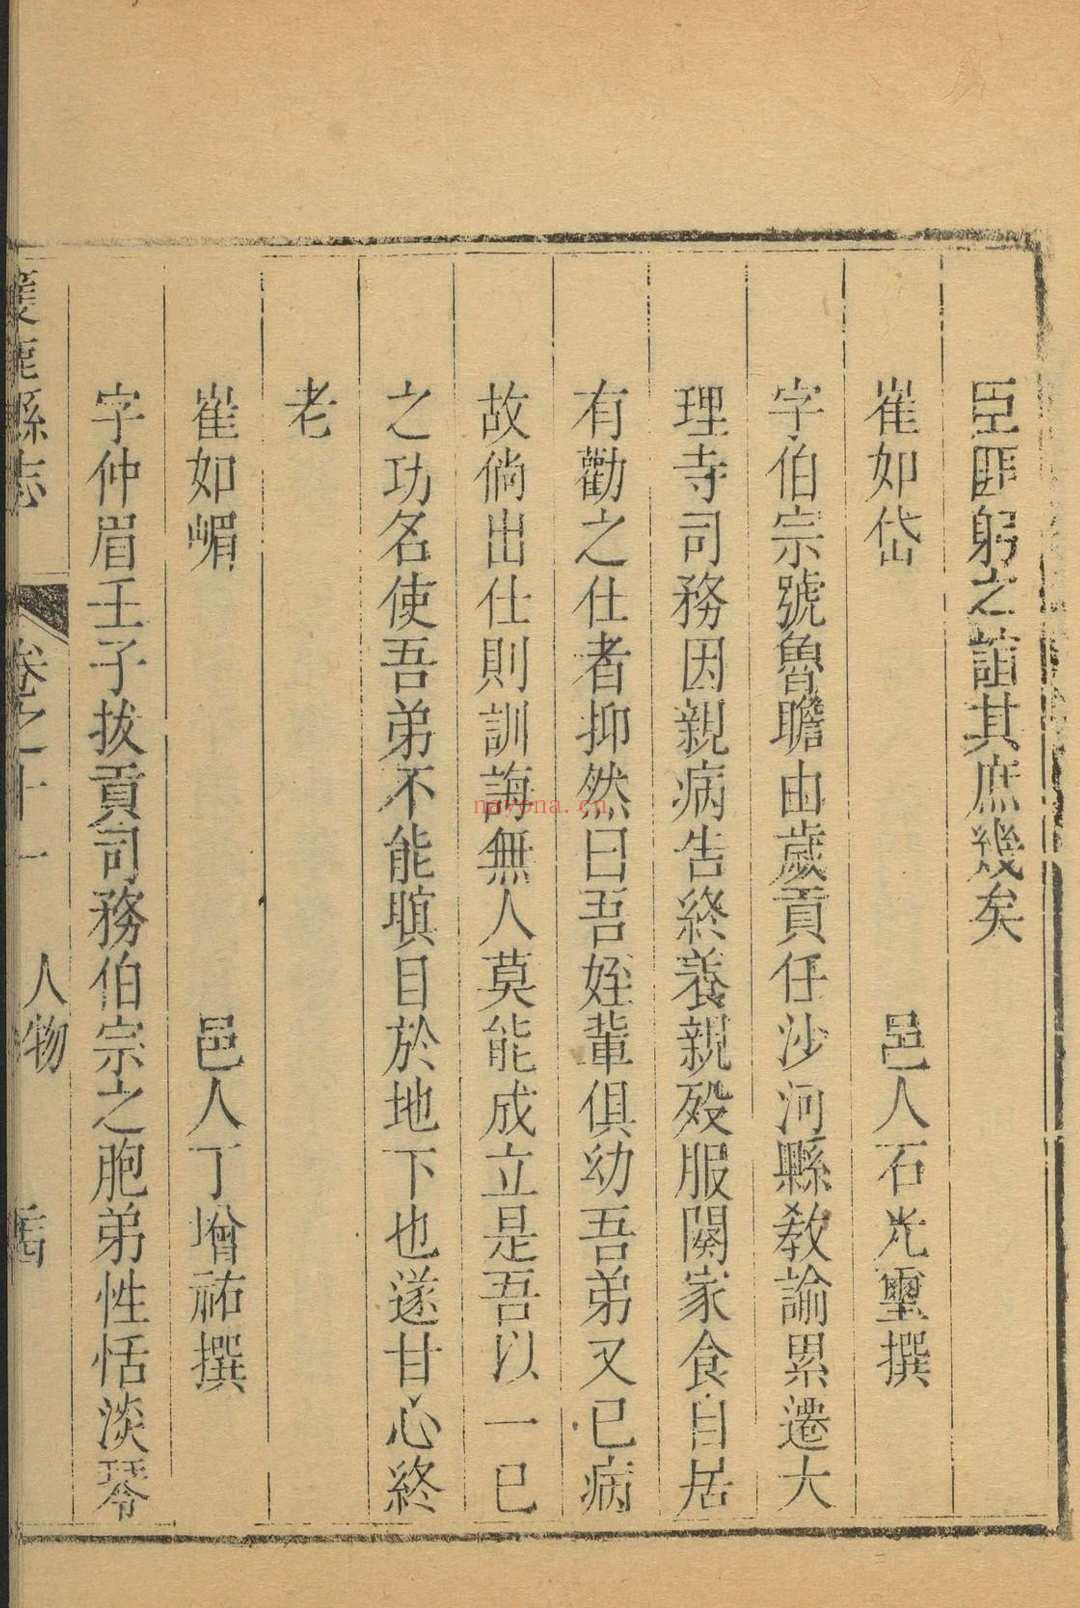 臣匪躬之誼其庶幾矣
崔如岱 邑人石光璽撰
字伯宗號魯瞻由歲貢任沙河縣教諭累遷大
理寺司務因親病告終養親殁服闋家食自居
有勸之仕者抑然曰吾姪輩俱幼吾弟又已病
故倘出仕則訓誨無人莫能成立是吾以一已
之功名使吾弟不能瞋目於地下也遂甘心終
老
崔如嵋 邑人丁增祐撰
字仲眉壬子拔貢司務伯宗之胞弟性恬淡琴
縣志 卷之十一 人物
navona.cn